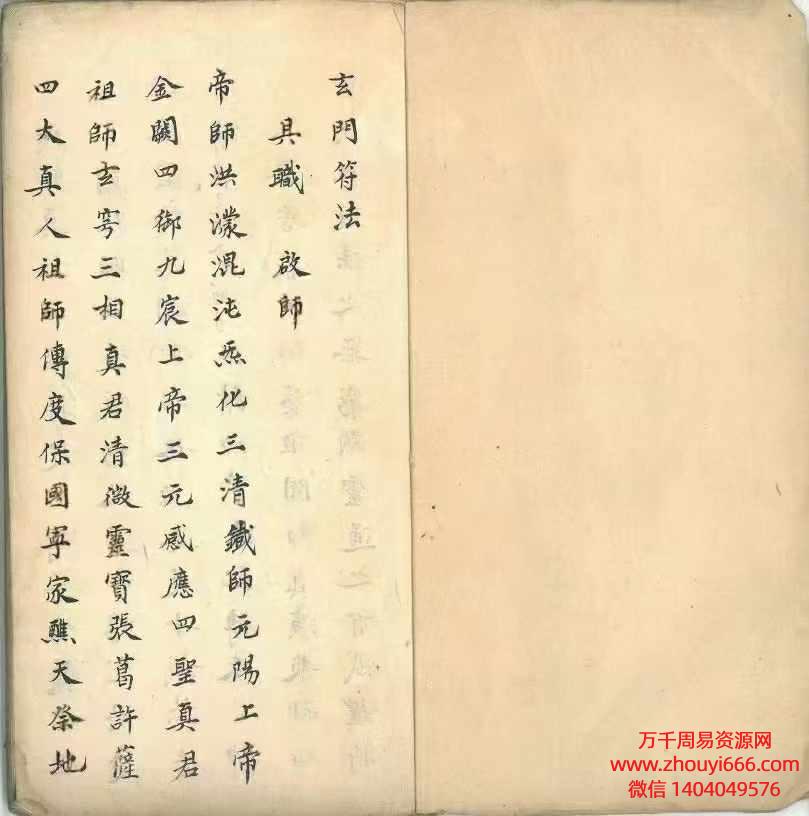 玄門符法
具職 啟師
帝師洪濛混沌炁化三清鐵師元陽上帝
金闕四御九宸上帝三元感應四聖真君
祖師玄穹三相真君清微靈寶張葛許薩
四大真人祖師傳度保國寧家醮天祭地
万千周易资源网
www.zhouyi666.com
微信 1404049576